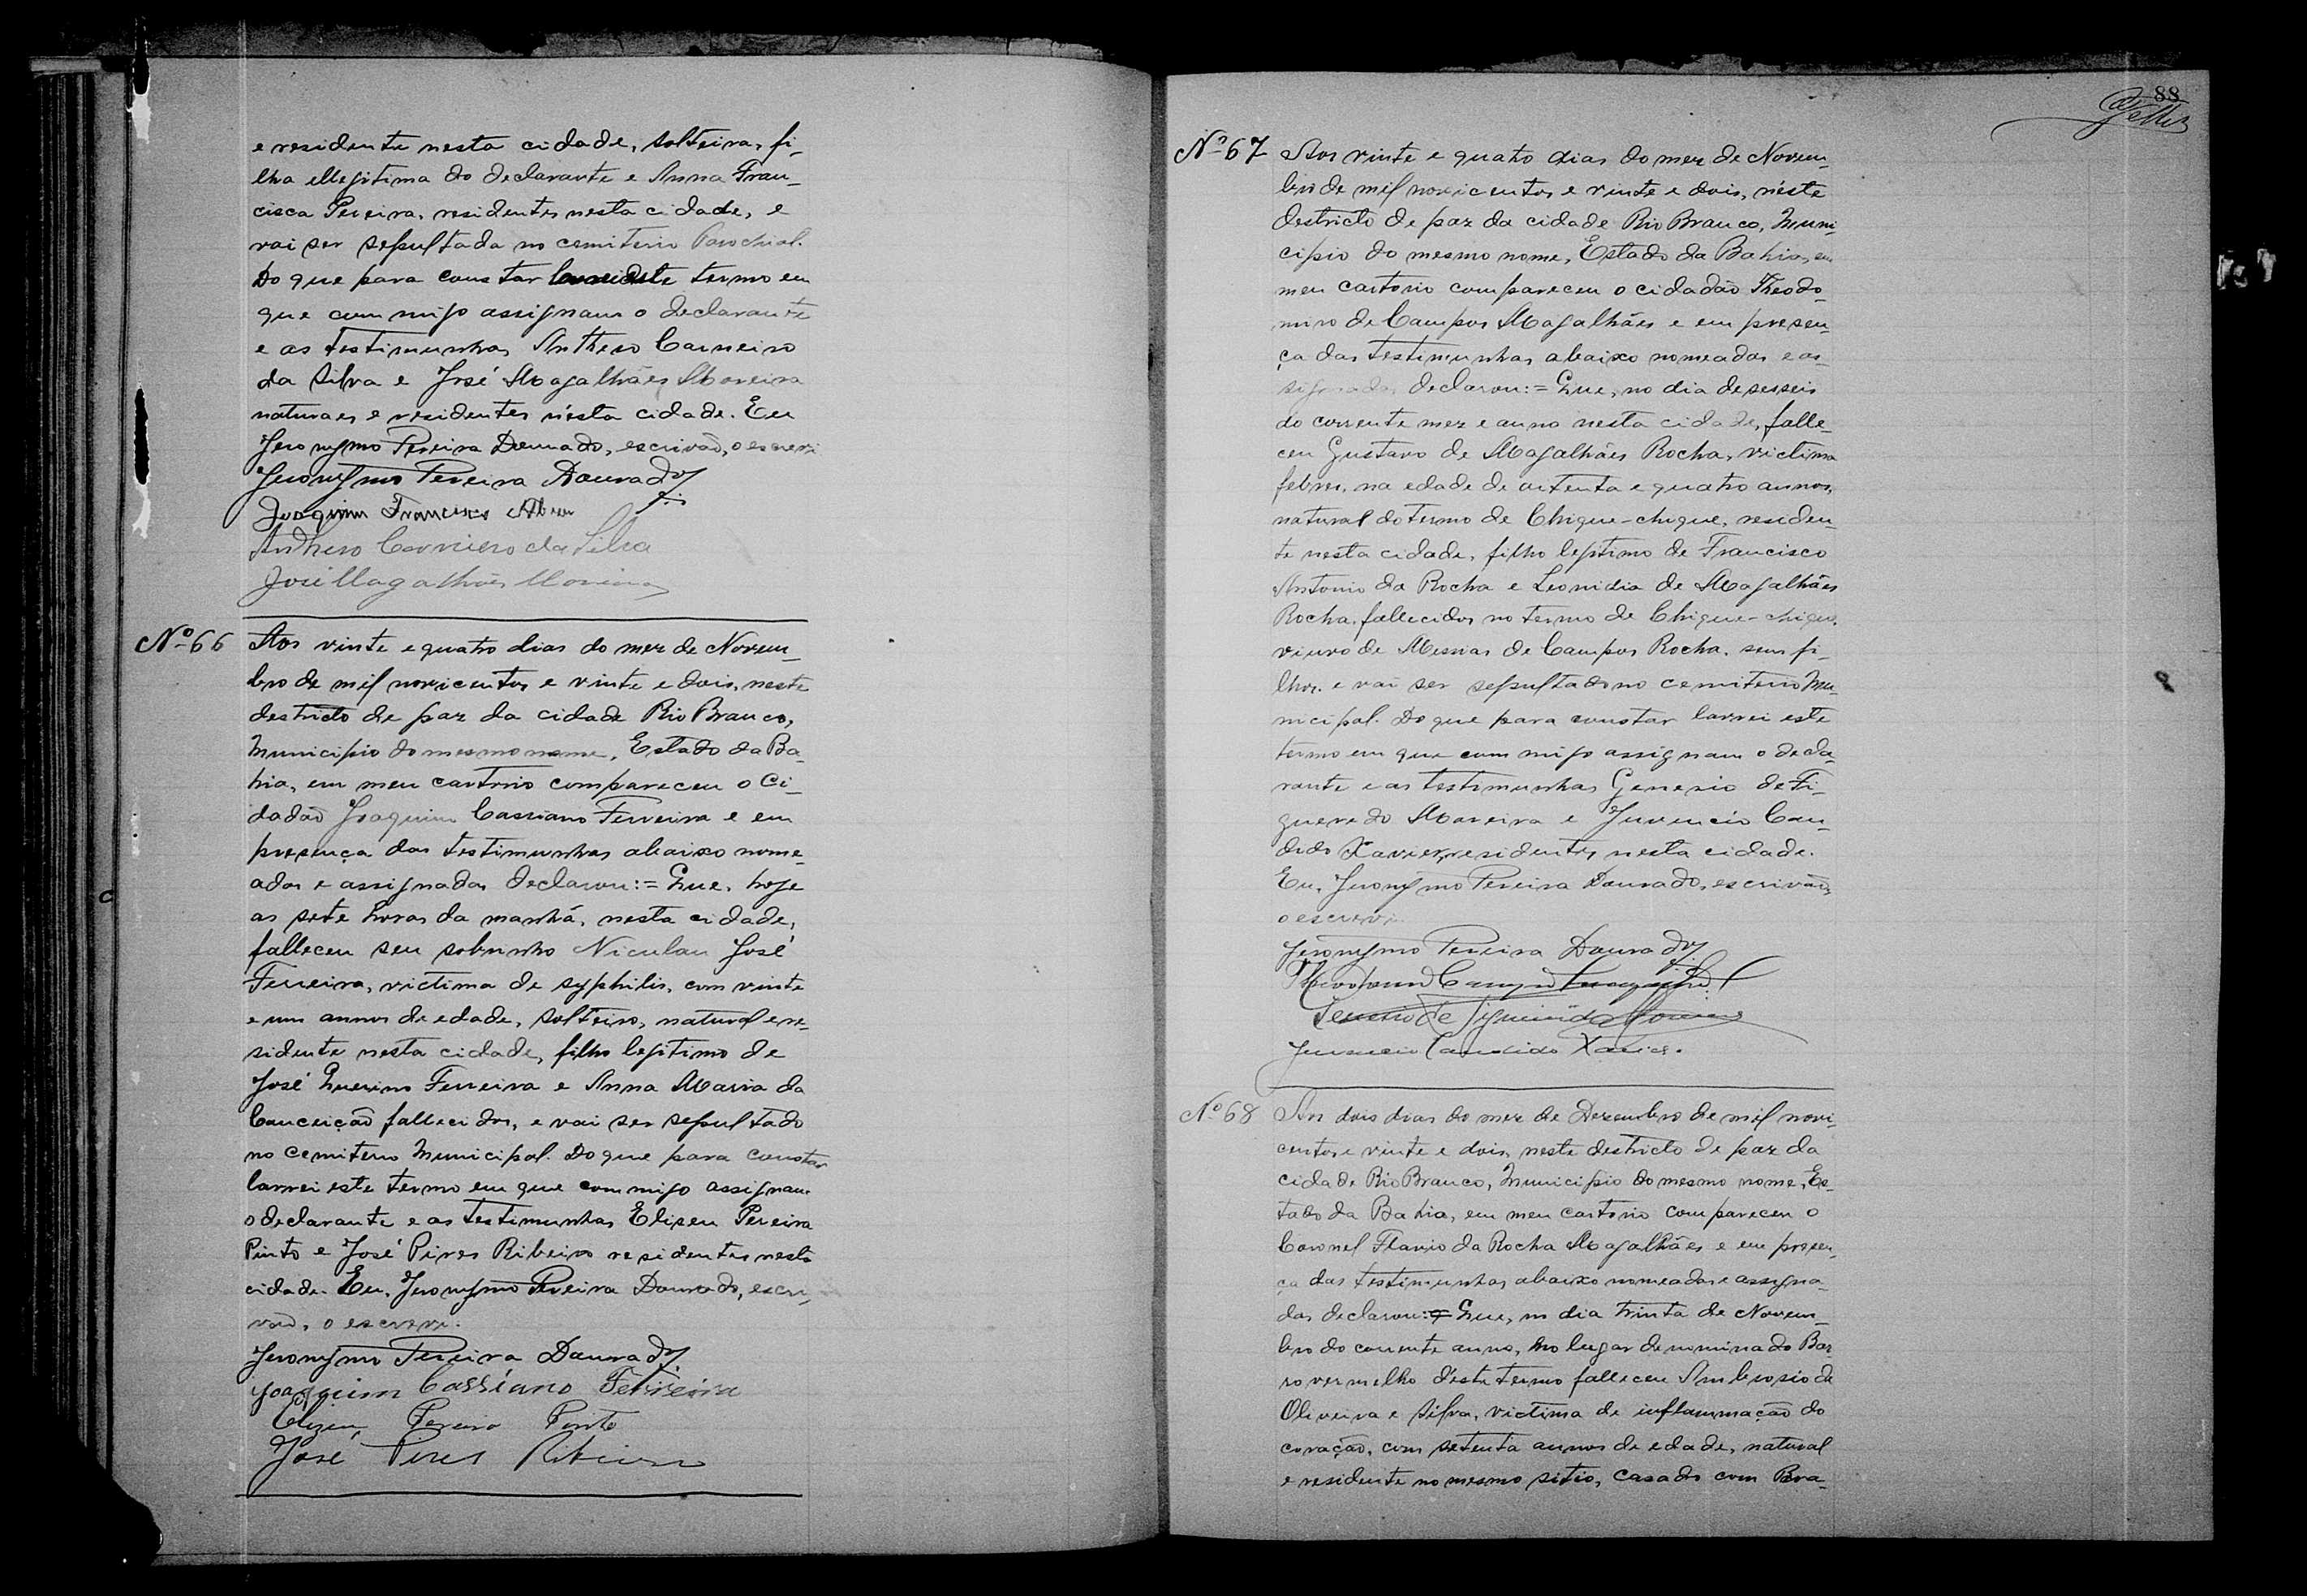 e residente nesta cidade, solteira, fi-
lha illegitima do declarante e Anna Fran-
cisca Pereira, residentes nesta cidade, e
vai ser sepultada no cemiterio Parochial.
Do que para constar lavrei este termo em
que commigo assignam o declarante
e as testimunhas Anthero Carneiro
da Silva e José Magalhães Moreira
naturaes e residentes n'esta cidade. Eu
Jeronymo Pereira Dourado, escrivão, o escrevi
Jeronymo Pereira Dourado
Joaquim Francisco Abreu
Anthero Carneiro da Silva
José Magalhães Moreira
Nº 66
Aos vinte e quatro dias do mez de Novem-
bro de mil novicentos e vinte e dois, neste
destricto de paz da cidade Rio Branco,
Municipio do mesmo nome, Estado da Ba-
hia, em meu cartorio compareceu o Ci-
dadão Joaquim Cassiano Ferreira e em
presença das testimunhas abaixo nome-
adas e assignadas declarou:= Que, hoje
as sete horas da manhã, nesta cidade,
falleceu seu sobrinho Niculau José
Ferreira, victima de syphilis, com vinte
e um annos de edade, solteiro, natural e re-
sidente nesta cidade, filho legitimo de
José Querino Ferreira e Anna Maria da
Conceição fallecidos, e vai ser sepultado
no cemiterio Municipal. Do que para constar
lavrei este termo em que commigo assignam
o declarante e as testimunhas Eliseu Pereira
Pinto e José Pires Ribeiro residentes nesta
cidade. Eu, Jeronymo Pereira Dourado, escri-
vão, o escrevi.
Jeronymo Pereira Dourado
Joaquim Cassiano Ferreira
Elizeu Pereira Pinto
José Pires Ribeiro
88
Nº 67
Aos vinte e quatro dias do mez de Novem-
bro de mil novicentos e vinte e dois, n'este
destricto de paz da cidade Rio Branco, Muni-
cipio do mesmo nome, Estado da Bahia, em
meu cartorio compareceu o cidadão Theodo-
miro de Campos Magalhães e em presen-
ça das testimunhas abaixo nomeadas e as-
signadas declarou:= Que, no dia deseseis
do corrente mez e anno nesta cidade, falle-
ceu Gustavo de Magalhães Rocha, victima
febres, na edade de oitenta e quatro annos,
natural do termo de Chique-chique, residen-
te nesta cidade, filho legitimo de Francisco
Antonio da Rocha e Leonidia de Magalhães
Rocha, fallecidos no termo de Chique-chique,
viuvo de Messias de Campos Rocha, sem fi-
lhos, e vai ser sepultado no cemiterio Mu-
nicipal. Do que para constar lavrei este
termo em que commigo assignam o decla-
rante e as testimunhas Genesio de Fi-
gueredo Moreira e Juvencio Can-
dido Xavier, residentes nesta cidade.
Eu, Jeronymo Pereira Dourado, escrivão,
o escrevi.
Jeronymo Pereira Dourado
Theodomiro Campos Magalhães
Genesio de Figueirêdo Moreira
Juvencio Candido Xavier.
Nº 68
Aos dois dias do mez de Dezembro de mil novi-
centos e vinte e dois, neste destricto de paz da
cidade Rio Branco, Municipio do mesmo nome, Es-
tado da Bahia, em meu cartorio compareceu o
Coronel Flavio da Rocha Magalhães e em presen-
ça das testimunhas abaixo nomeadas e assigna-
das declarou:= Que, no dia trinta de Novem-
bro do corrente anno, no lugar denominado Bar-
ro vermelho d'este termo falleceu Ambrosio de
Oliveira e Silva, victima de inflammação do
coração, com setenta annos de edade, natural
e residente no mesmo sitio, casado com Bra-